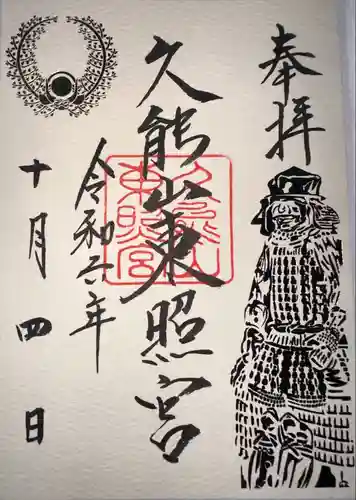 奉拝
久能山東照宮
久能山
東照宮
令和六年
十月四日